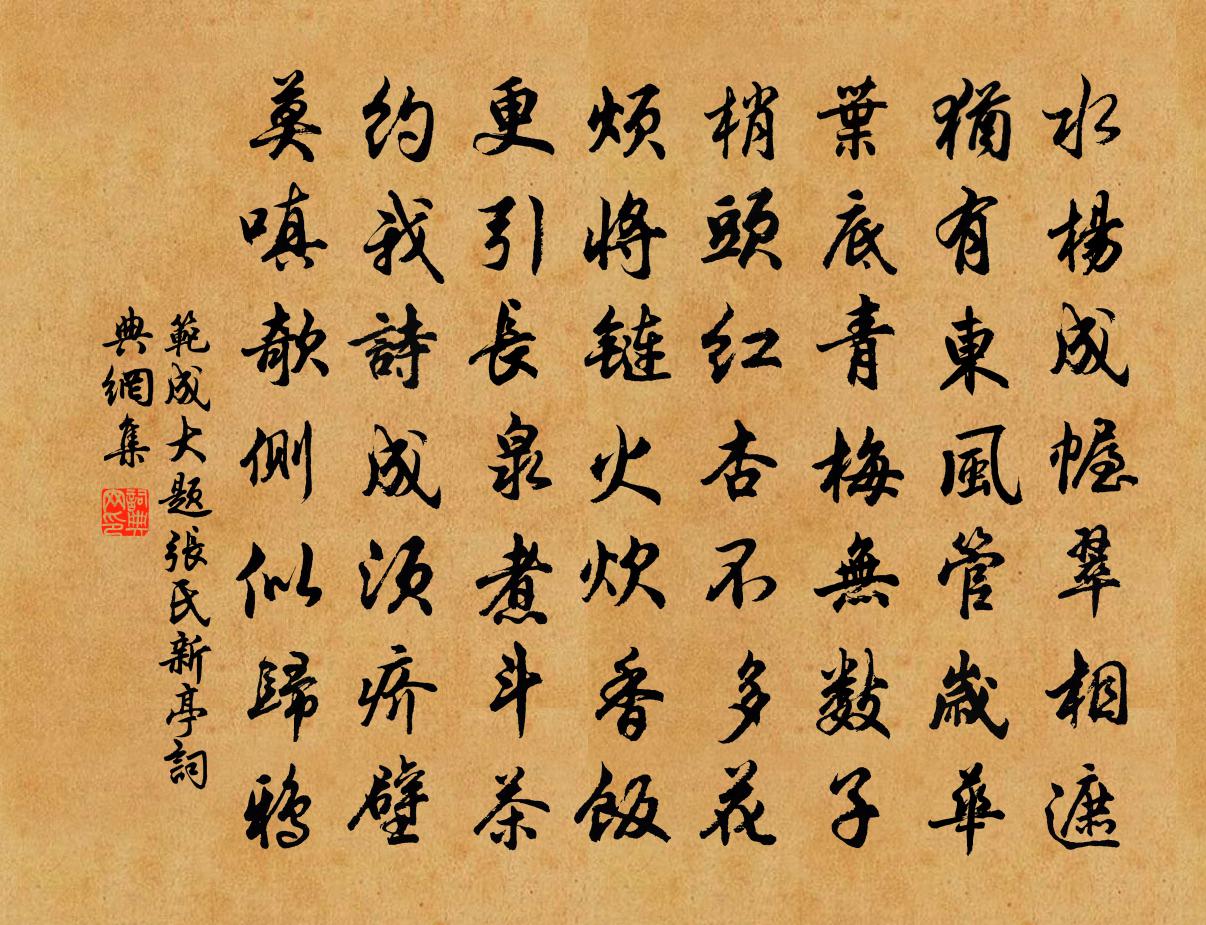 水楊成幄翠相遮
猶有東風管歲華
葉底青梅無數子
梢頭紅杏不多花
煩將鏈火炊香飯
更引長泉煮斗茶
約我詩成須疥壁
莫嗔欹側似歸鴉
範成大題張氏新亭詞
典網集
詞典
网印